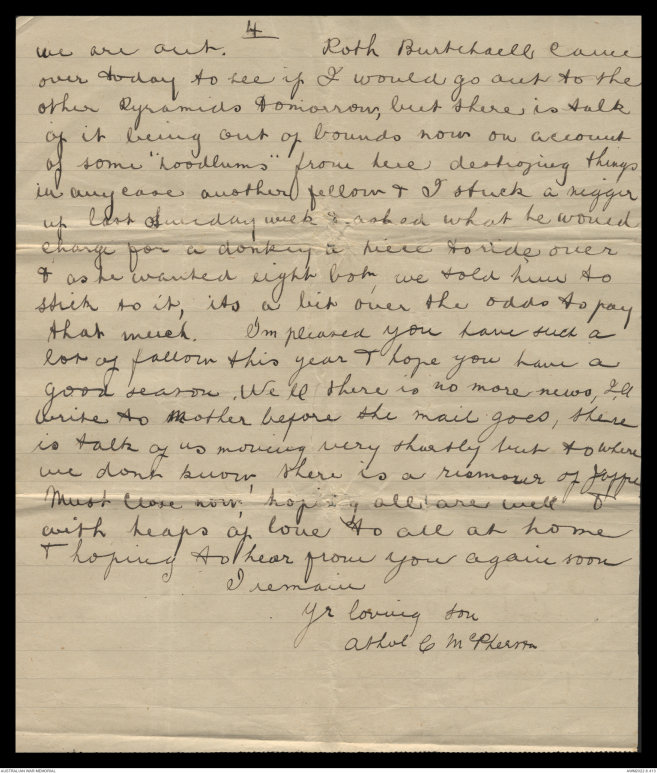 4
we are out. Roth Burtchaell came
over today to see if I would go out to the
other Pyramids tomorrow, but there is talk
of it being out of bounds now on account
of some "hoodlums" from here destroying things
in any case another fellow & I struck a nigger
up last Sunday week & asked what he would
charge for a donkey a piece to ride over
& as he wanted eight bob, we told him to
stick to it, its a bit over the odds to pay
that much. Im pleased you have such a
lot of fallow this year & hope you have a
good season. We'll there is no more news, I'll
write to Mother before the mail goes, there
is talk of us moving very shortly but to where
we dont know, there is a rumour of Jaffa
Must close now, hoping all are well &
with heaps of love to all at home
& hoping to hear from you again soon
I remain
Yr loving son
Athol C McPherson
AUSTRALIAN WAR MEMORIAL